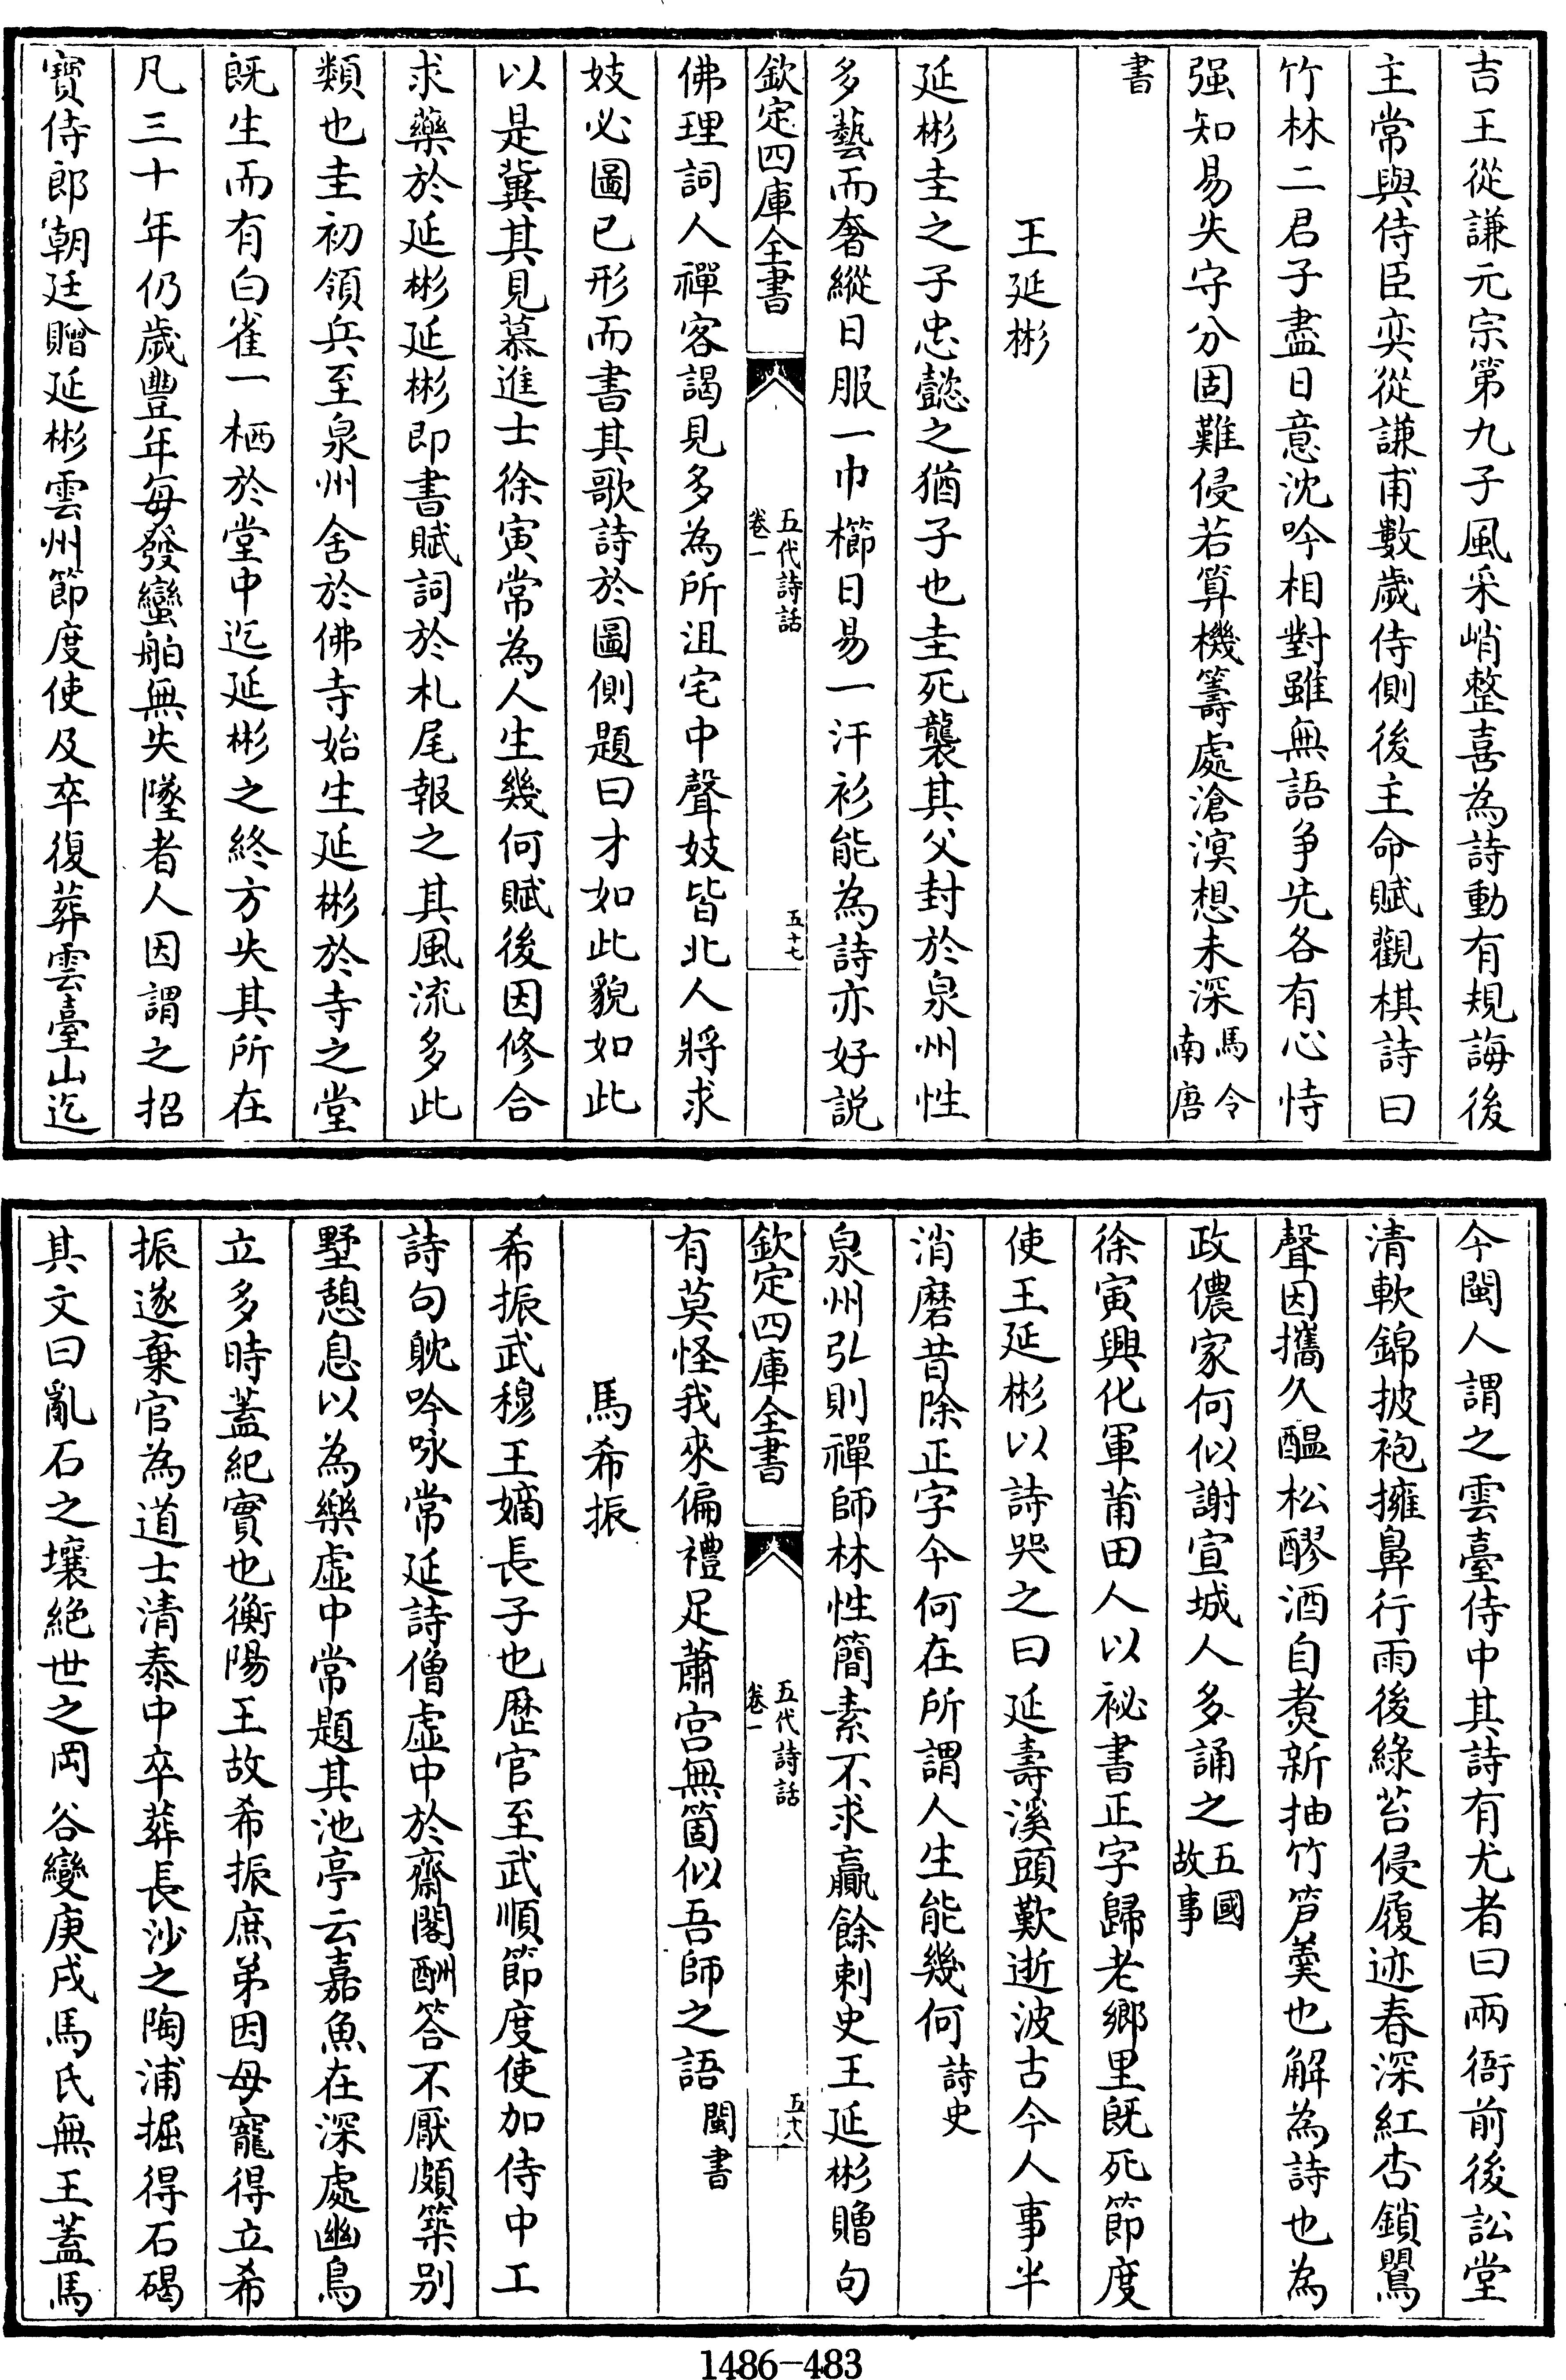 吉王從謙元宗第九子風采峭整喜為詩動有規誨後
主常與侍臣奕從謙甫數歲侍側後主命賦觀棋詩曰
竹林二君子盡日意沈吟相對雖無語争先各有心恃
强知易失守分固難侵若算機籌處滄溟想未深馬令南唐
書
王延彬
延彬圭之子忠懿之猶子也圭死襲其父封於泉州性
多藝而奢縱日服一巾櫛日易一汗衫能為詩亦好説
欽定四庫全書
五代詩話
卷一
五十七
佛理詞人禪客謁見多為所沮宅中聲妓皆北人將求
妓必圖已形而書其歌詩於圖側題曰才如此貌如此
以是冀其見慕進士徐寅常為人生幾何賦後因修合
求藥於延彬延彬即書賦詞於札尾報之其風流多此
類也圭初領兵至泉州舍於佛寺始生延彬於寺之堂
既生而有白雀一栖於堂中迄延彬之終方失其所在
凡三十年仍歲豐年每發蠻舶無失墜者人因謂之招
寶侍郎朝廷贈延彬雲州節度使及卒復葬雲臺山迄
今閩人謂之雲臺侍中其詩有尤者曰兩衙前後訟堂
清軟錦披袍擁鼻行雨後綠苔侵履迹春深紅杏鎖鸎
聲因攜久醞松醪酒自煮新抽竹笋羹也解為詩也為
政儂家何似謝宣城人多誦之五國故事
徐寅興化軍莆田人以祕書正字歸老鄉里既死節度
使王延彬以詩哭之曰延壽溪頭歎逝波古今人事半
消磨昔除正字今何在所謂人生能幾何詩史
泉州弘則禪師林性簡素不求贏餘刺史王延彬贈句
欽定四庫全書
五代詩話
卷一
五十八
有莫怪我來偏禮足蕭宫無箇似吾師之語閩書
馬希振
希振武穆王嫡長子也歴官至武順節度使加侍中工
詩句躭吟咏常延詩僧虚中於齋閣酬答不厭頗築别
墅憩息以為樂虚中常題其池亭云嘉魚在深處幽鳥
立多時蓋紀實也衡陽王故希振庶弟因母寵得立希
振遂棄官為道士清泰中卒葬長沙之陶浦掘得石碣
其文曰亂石之壤絶世之岡谷變庚戌馬氏無王蓋馬
1486-483